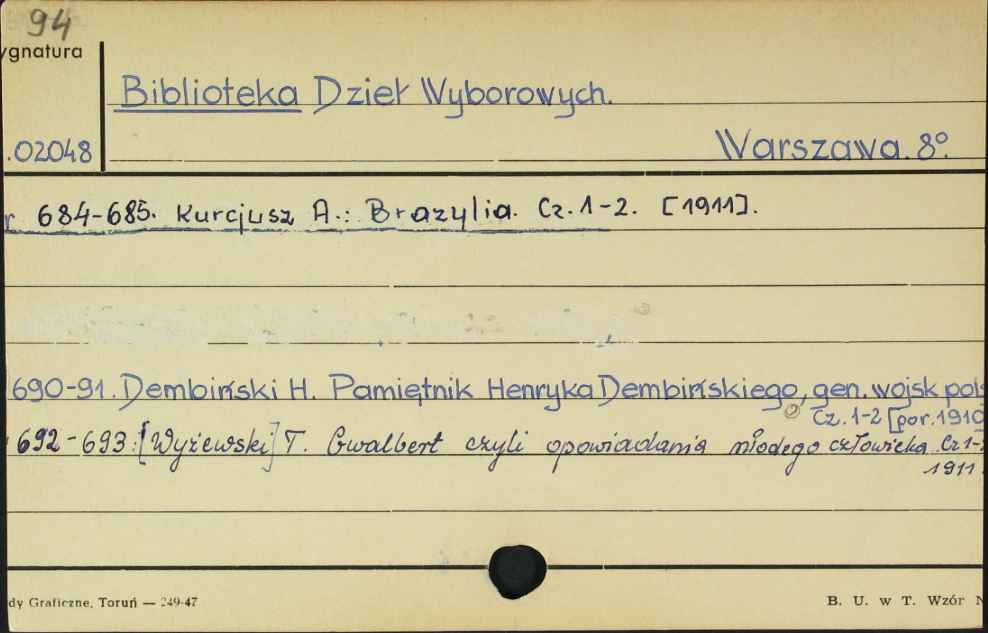 94
ygnatura
Biblioteka Dzieł Wyborowych.
.02048
Warszawa. 8º.
r 684-685. Kurcjusz A.: Brazylia. Cz. 1-2. [1911].
690-91. Dembiński H. Pamiętnik Henryka Dembińskiego, gen. wojsk pols
Cz. 1-2 [por. 1910
692-693: [Wyżewski] T. Gwalbert czyli opowiadania młodego człowieka. Cz 1-2
1911.
dy Graficzne, Toruń — 249-47
B. U. w T. Wzór N